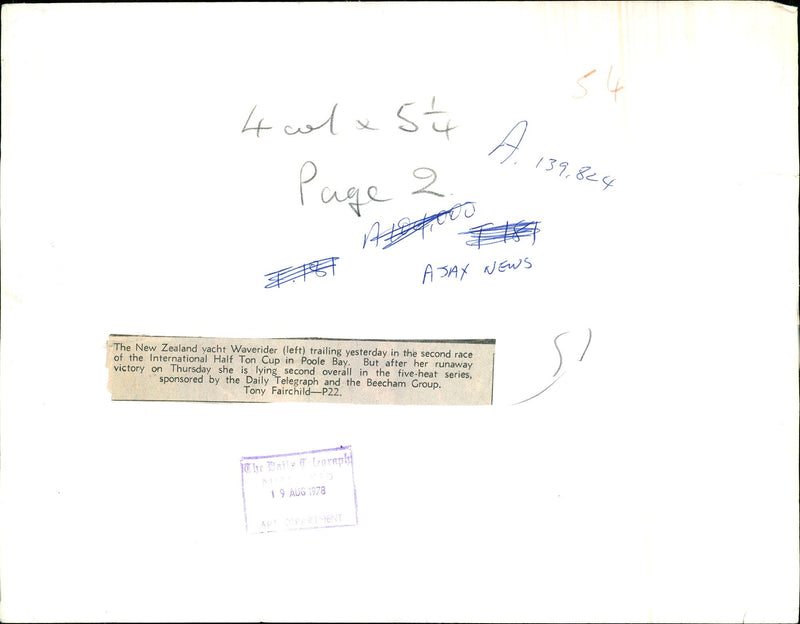 54
4 col x 5 1/4
A. 139,824
Page 2.
AJAX NEWS
The New Zealand yacht Waverider (left) trailing yesterday in the second race
of the International Half Ton Cup in Poole Bay. But after her runaway
victory on Thursday she is lying second overall in the five-heat series,
sponsored by the Daily Telegraph and the Beecham Group.
Tony Fairchild—P22.
51
The Daily Telegraph
19 AUG 1978
ART DEPARTMENT